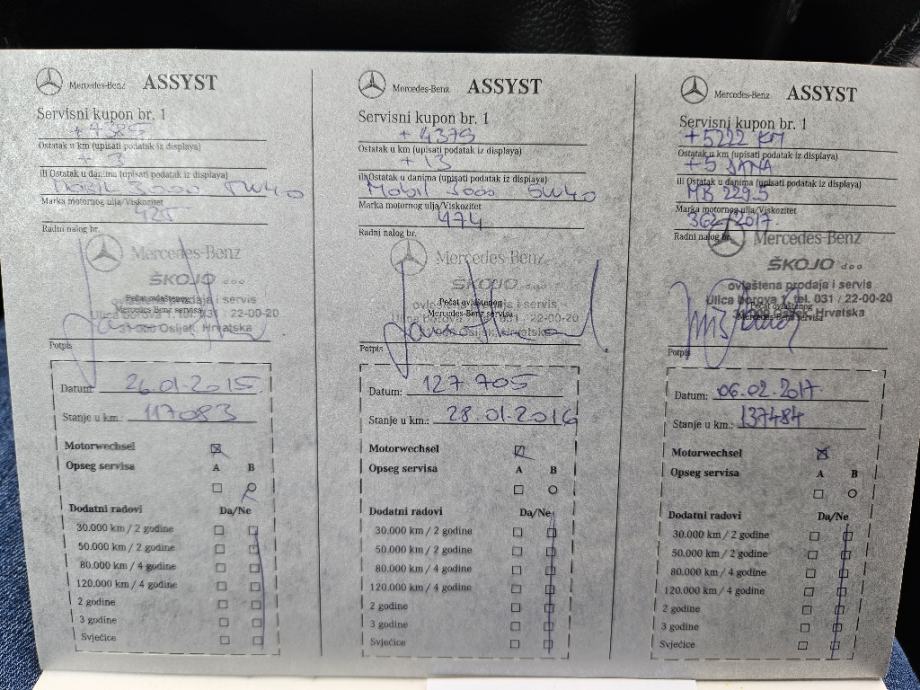 Mercedes-Benz ASSYST
Servisni kupon br. 1
+ 7385
Ostatak u km (upisati podatak iz displaya)
+ 3
ili Ostatak u danima (upisati podatak iz displaya)
Mobil 3000 5W40
Marka motornog ulja/Viskozitet
425
Radni nalog br.
Mercedes-Benz
ŠKOJO d o o
ovlaštena prodaja i servis
Pečat ovlaštenog
Mercedes-Benz servisa
Ulica borova 7, tel. 031 / 22-00-20
31000 Osijek, Hrvatska
Potpis
Datum: 26.01.2015
Stanje u km.: 117083
Motorwechsel
Opseg servisa A B
Dodatni radovi Da/Ne
30.000 km / 2 godine
50.000 km / 2 godine
80.000 km / 4 godine
120.000 km / 4 godine
2 godine
3 godine
Svjećice
Mercedes-Benz ASSYST
Servisni kupon br. 1
+ 4379
Ostatak u km (upisati podatak iz displaya)
+ 13
ili Ostatak u danima (upisati podatak iz displaya)
Mobil 3000 5W40
Marka motornog ulja/Viskozitet
474
Radni nalog br.
Mercedes-Benz
ŠKOJO d o o
ovlaštena prodaja i servis
Pečat ovlaštenog
Mercedes-Benz servisa
Ulica borova 7, tel. 031 / 22-00-20
31000 Osijek, Hrvatska
Potpis
Datum: 127 705
Stanje u km.: 28.01.2016
Motorwechsel
Opseg servisa A B
Dodatni radovi Da/Ne
30.000 km / 2 godine
50.000 km / 2 godine
80.000 km / 4 godine
120.000 km / 4 godine
2 godine
3 godine
Svjećice
Mercedes-Benz ASSYST
Servisni kupon br. 1
+5222 KM
Ostatak u km (upisati podatak iz displaya)
+5 DANA
ili Ostatak u danima (upisati podatak iz displaya)
MB 229.5
Marka motornog ulja/Viskozitet
362/2017.
Radni nalog br.
Mercedes-Benz
ŠKOJO d o o
ovlaštena prodaja i servis
Ulica borova 7, tel. 031 / 22-00-20
Pečat ovlaštenog
31000 Osijek, Hrvatska
Mercedes-Benz servisa
Potpis
Datum: 06.02.2017
Stanje u km.: 137484
Motorwechsel
Opseg servisa A B
Dodatni radovi Da/Ne
30.000 km / 2 godine
50.000 km / 2 godine
80.000 km / 4 godine
120.000 km / 4 godine
2 godine
3 godine
Svjećice